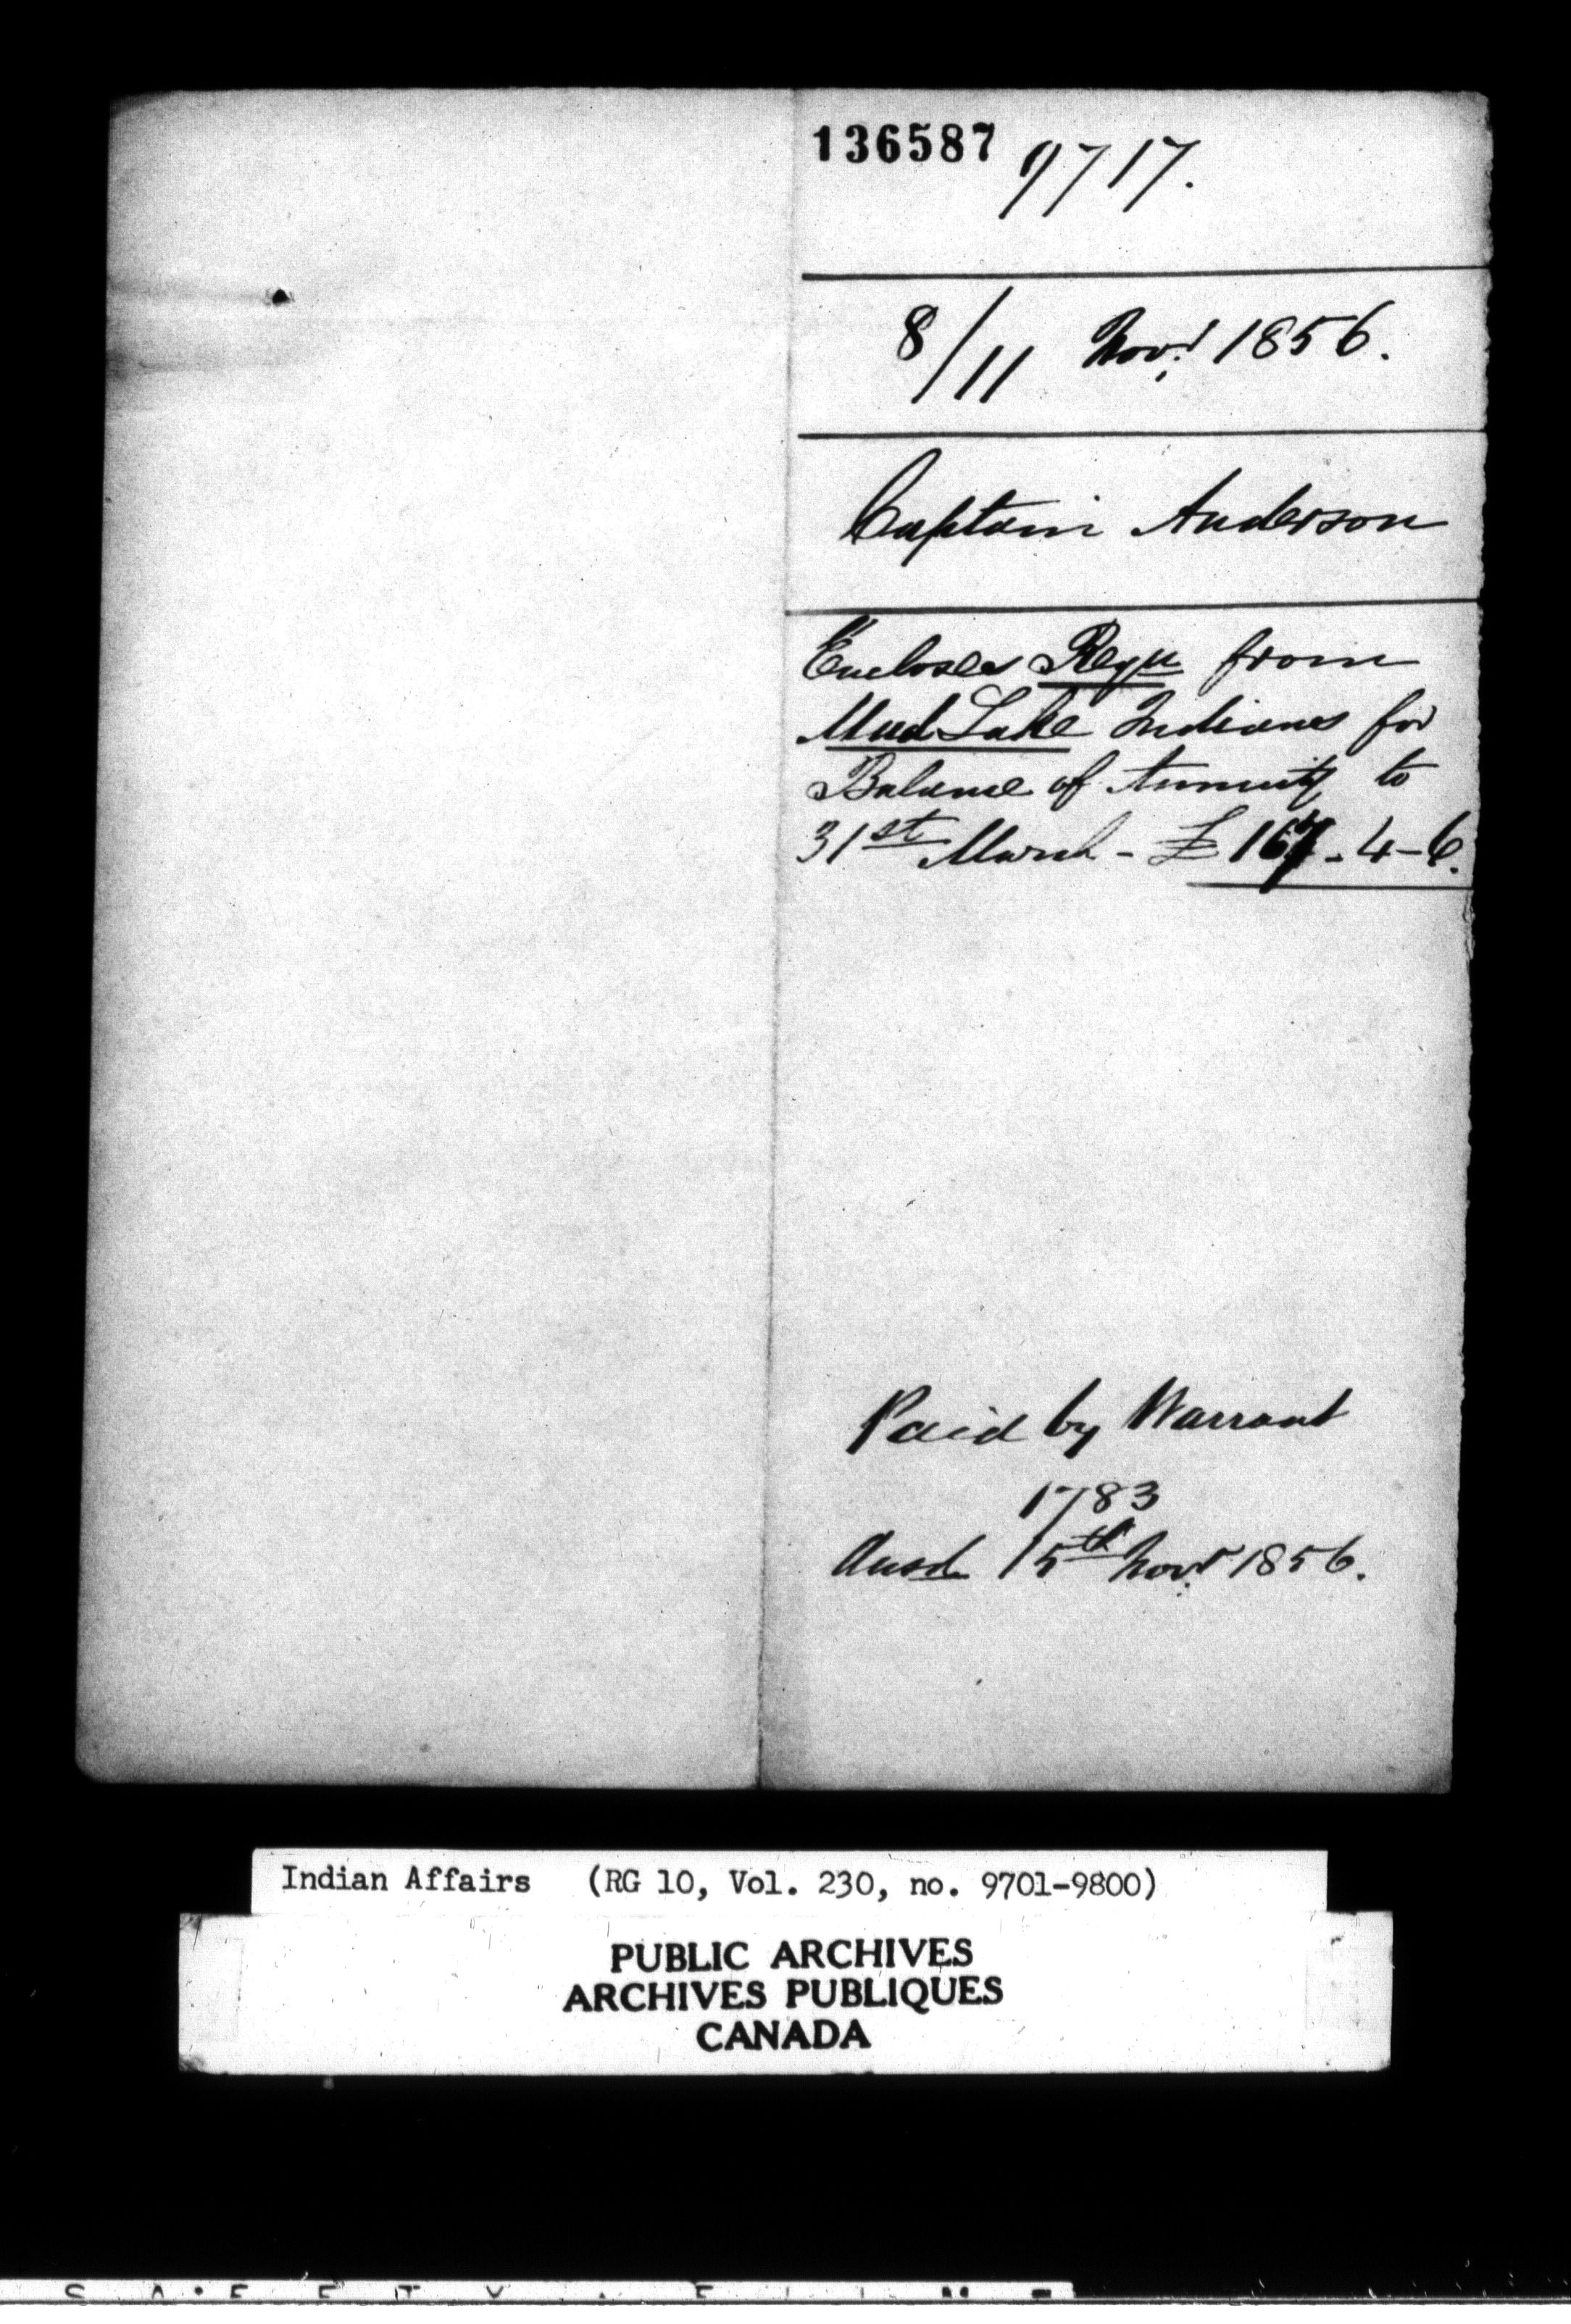 136587 9717.
8/11 Novr 1856.
Captain Anderson
Encloses Requ from
Mud Lake Indians for
Balance of Annuity to
31st March - £167-4-6.
Paid by Warrant
1783
Ansd 15th Novr 1856.
Indian Affairs (RG 10, Vol. 230, no. 9701-9800)
PUBLIC ARCHIVES
ARCHIVES PUBLIQUES
CANADA